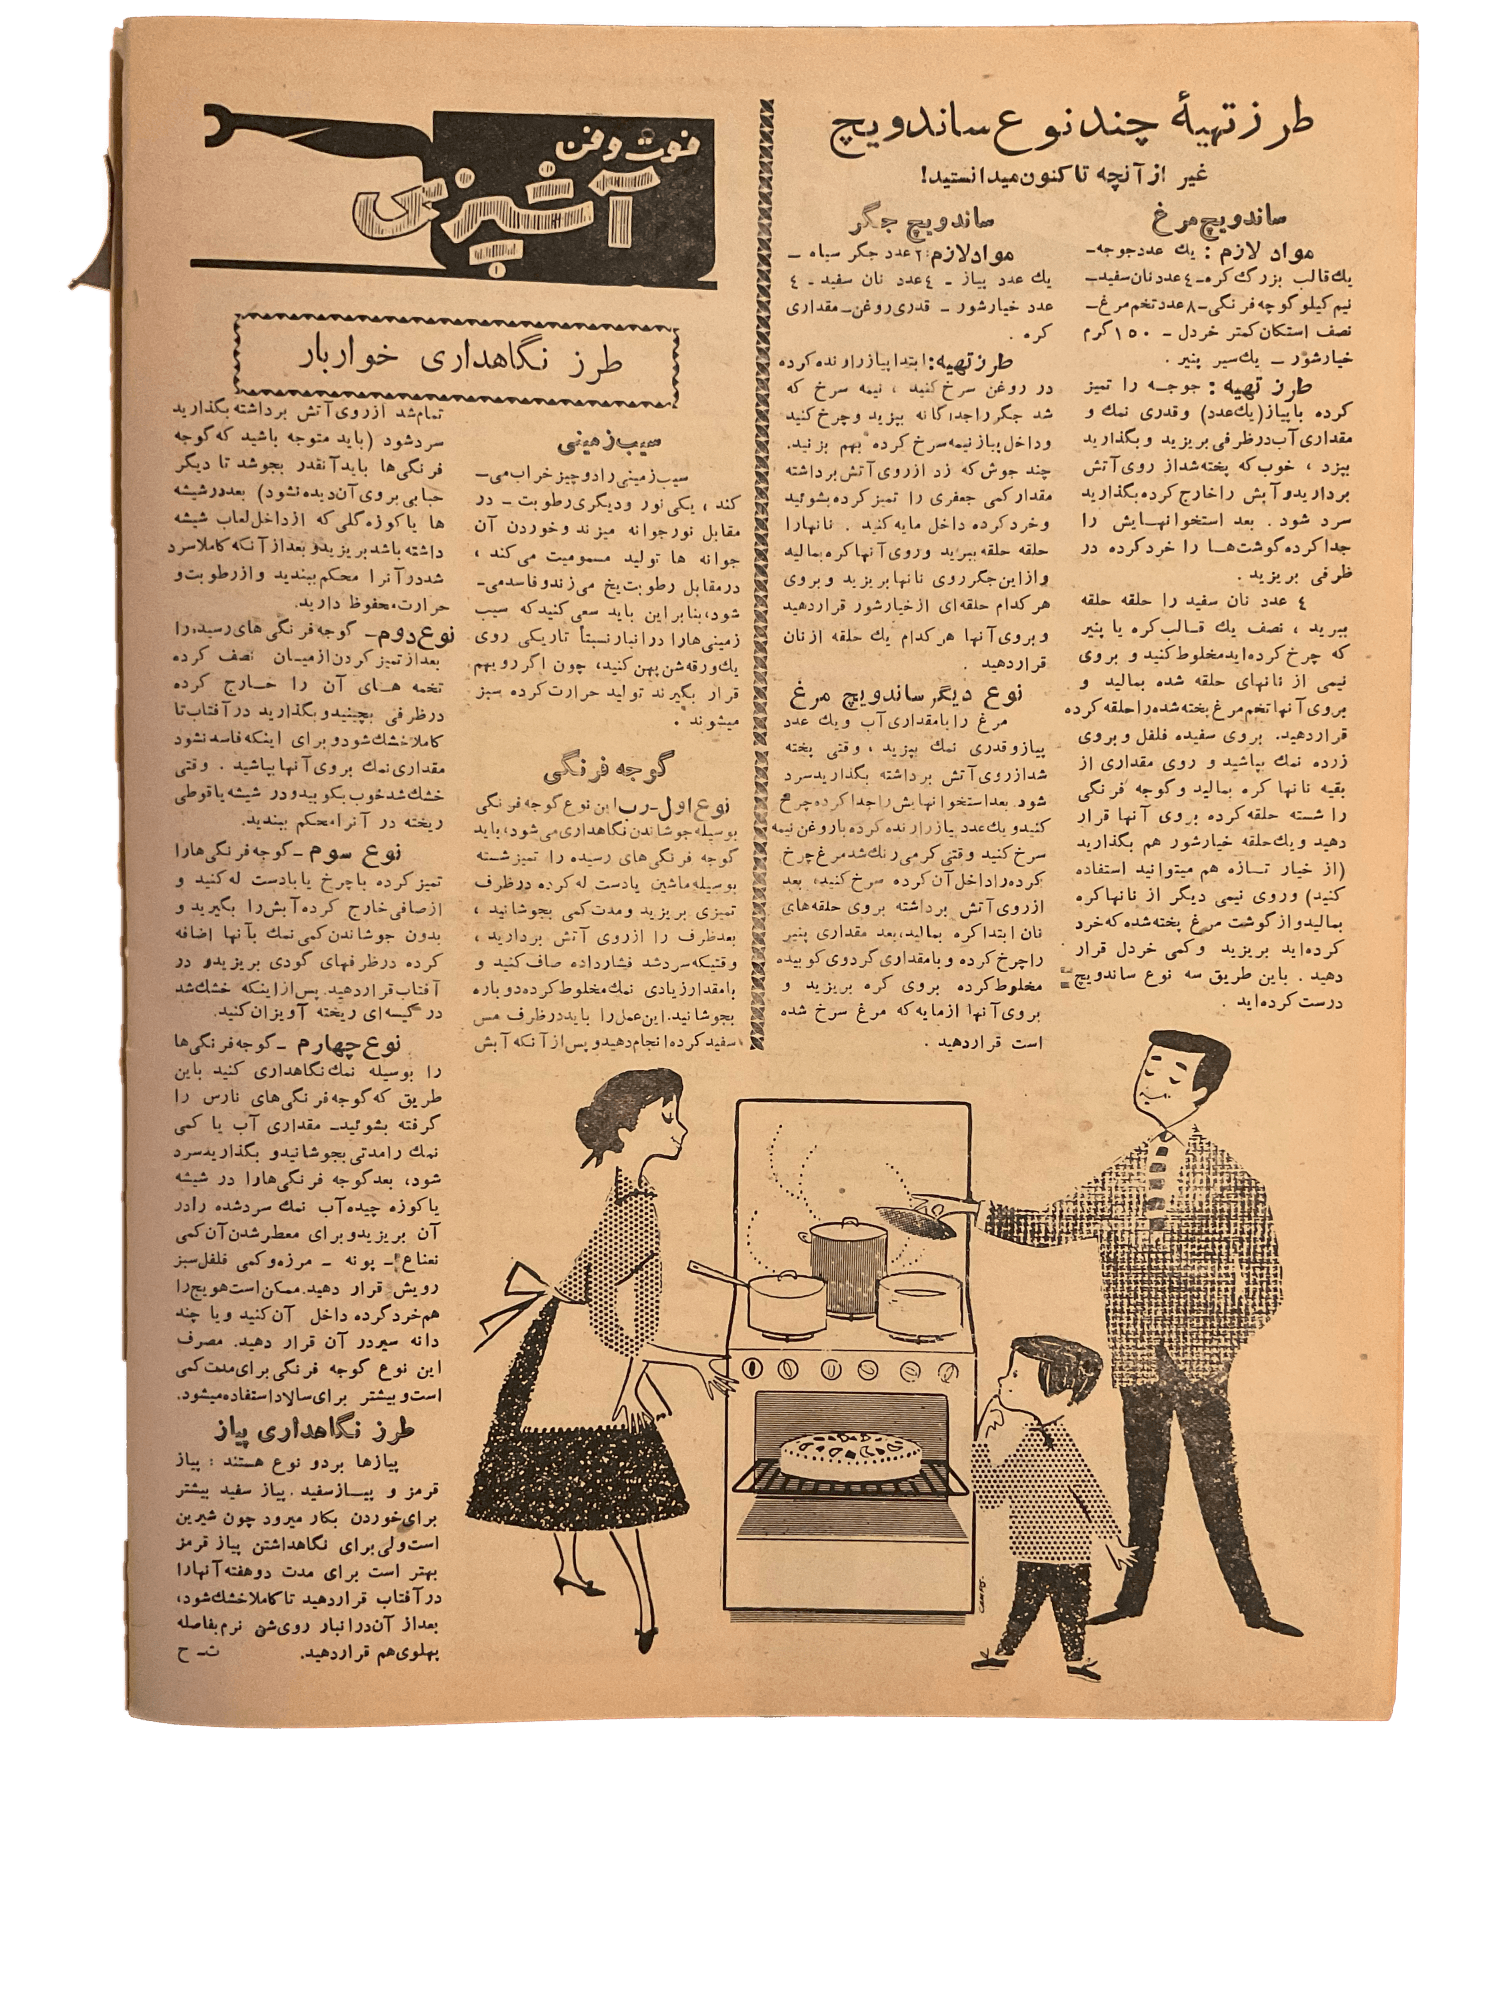 طرز تهیهٔ چند نوع ساندویچ
غیر از آنچه تا کنون میدانستید!
ساندویچ مرغ
مواد لازم : یك عدد جوجه ـ
یك قالب بزرگ کره ـ ٤ عدد نان سفید ـ
نیم کیلو گوجه فرنگی ـ ۸ عدد تخم مرغ ـ
نصف استکان کمتر خردل ـ ۱٥۰ گرم
خیارشور ـ یك سیر پنیر .
طرز تهیه : جوجه را تمیز
کرده با پیاز (یك عدد) و قدری نمك و
مقداری آب در ظرفی بریزید و بگذارید
بپزد ، خوب که پخته شد از روی آتش
بردارید و آبش را خارج کرده بگذارید
سرد شود . بعد استخوانهایش را
جدا کرده گوشت‌ها را خرد کرده در
ظرفی بریزید .
٤ عدد نان سفید را حلقه حلقه
ببرید ، نصف یك قالب کره یا پنیر
که چرخ کرده اید مخلوط کنید و بروی
نیمی از نانهای حلقه شده بمالید و
بروی آنها تخم مرغ پخته شده را حلقه کرده
قرار دهید. بروی سفیده فلفل و بروی
زرده نمك بپاشید و روی مقداری از
بقیه نانها کره بمالید و گوجه فرنگی
را شسته حلقه کرده بروی آنها قرار
دهید و یك حلقه خیارشور هم بگذارید
(از خیار تازه هم میتوانید استفاده
کنید) و روی نیمی دیگر از نانها کره
بمالید و از گوشت مرغ پخته شده که خرد
کرده اید بریزید و کمی خردل قرار
دهید . باین طریق سه نوع ساندویچ
درست کرده اید .
ساندویچ جگر
مواد لازم: ۲ عدد جگر سیاه ـ
یك عدد پیاز ـ ٤ عدد نان سفید ـ ٤
عدد خیارشور ـ قدری روغن ـ مقداری
کره .
طرز تهیه: ابتدا پیاز را رنده کرده
در روغن سرخ کنید ، نیمه سرخ که
شد جگر را جداگانه بپزید و چرخ کنید
و داخل پیاز نیمه سرخ کرده بهم بزنید.
چند جوش که زد از روی آتش برداشته
مقدار کمی جعفری را تمیز کرده بشوئید
و خرد کرده داخل مایه کنید . نانها را
حلقه حلقه ببرید و روی آنها کره بمالید
و از این جگر روی نانها بریزید و بروی
هر کدام حلقه ای از خیارشور قرار دهید
و بروی آنها هر کدام یك حلقه از نان
قرار دهید .
نوع دیگر ساندویچ مرغ
مرغ را با مقداری آب و یك عدد
پیاز و قدری نمك بپزید ، وقتی پخته
شد از روی آتش برداشته بگذارید سرد
شود. بعد استخوانهایش را جدا کرده چرخ
کنید و یك عدد پیاز را رنده کرده با روغن نیمه
سرخ کنید وقتی کرمی رنك شد مرغ چرخ
کرده را داخل آن کرده سرخ کنید، بعد
از روی آتش برداشته بروی حلقه‌های
نان ابتدا کره بمالید، بعد مقداری پنیر
را چرخ کرده و با مقداری گردوی کوبیده
مخلوط کرده بروی کره بریزید و
بروی آنها از مایه که مرغ سرخ شده
است قرار دهید .
فوت و فن
آشپزی
طرز نگاهداری خواربار
سیب زمینی
سیب زمینی را دو چیز خراب می ـ
کند ، یکی نور و دیگری رطوبت ـ در
مقابل نور جوانه میزند و خوردن آن
جوانه ها تولید مسمومیت می کند ،
در مقابل رطوبت یخ می زند و فاسد می ـ
شود، بنابراین باید سعی کنید که سیب
زمینی ها را در انبار نسبتاً تاریکی روی
یك ورقه شن پهن کنید، چون اگر رو بهم
قرار بگیرند تولید حرارت کرده سبز
میشوند .
گوجه فرنگی
نوع اول ـ رب این نوع گوجه فرنگی
بوسیله جوشاندن نگاهداری می شود، باید
گوجه فرنگی های رسیده را تمیز شسته
بوسیله ماشین یا دست له کرده در ظرف
تمیزی بریزید و مدت کمی بجوشانید ،
بعد ظرف را از روی آتش بردارید ،
وقتیکه سرد شد فشار داده صاف کنید و
با مقدار زیادی نمك مخلوط کرده دوباره
بجوشانید. این عمل را باید در ظرف مس
سفید کرده انجام دهید و پس از آنکه آبش
تمام شد از روی آتش برداشته بگذارید
سرد شود (باید متوجه باشید که گوجه
فرنگی ها باید آنقدر بجوشد تا دیگر
حبابی بروی آن دیده نشود) بعد در شیشه
ها یا کوزه گلی که از داخل لعاب شیشه
داشته باشد بریزید و بعد از آنکه کاملا سرد
شد در آنرا محکم ببندید و از رطوبت و
حرارت محفوظ دارید.
نوع دوم ـ گوجه فرنگی های رسیده را
بعد از تمیز کردن از میان نصف کرده
تخمه های آن را خارج کرده
در ظرفی بچینید و بگذارید در آفتاب تا
کاملا خشك شود و برای اینکه فاسد نشود
مقداری نمك بروی آنها بپاشید . وقتی
خشك شد خوب بکوبید و در شیشه یا قوطی
ریخته در آنرا محکم ببندید.
نوع سوم ـ گوجه فرنگی ها را
تمیز کرده با چرخ یا با دست له کنید و
از صافی خارج کرده آبش را بگیرید و
بدون جوشاندن کمی نمك بآنها اضافه
کرده در ظرفهای گودی بریزید و در
آفتاب قرار دهید. پس از اینکه خشك شد
در کیسه ای ریخته آویزان کنید.
نوع چهارم ـ گوجه فرنگی ها
را بوسیله نمك نگاهداری کنید باین
طریق که گوجه فرنگی های نارس را
گرفته بشوئید ـ مقداری آب یا کمی
نمك را مدتی بجوشانید و بگذارید سرد
شود، بعد گوجه فرنگی ها را در شیشه
یا کوزه چیده آب نمك سرد شده را در
آن بریزید و برای معطر شدن آن کمی
نعناع ـ پونه ـ مرزه و کمی فلفل سبز
رویش قرار دهید. ممکن است هویج را
هم خرد کرده داخل آن کنید و یا چند
دانه سیر در آن قرار دهید. مصرف
این نوع گوجه فرنگی برای مدت کمی
است و بیشتر برای سالاد استفاده میشود.
طرز نگاهداری پیاز
پیازها بر دو نوع هستند : پیاز
قرمز و پیاز سفید . پیاز سفید بیشتر
برای خوردن بکار میرود چون شیرین
است ولی برای نگاهداشتن پیاز قرمز
بهتر است برای مدت دو هفته آنها را
در آفتاب قرار دهید تا کاملا خشك شود،
بعد از آن در انبار روی شن نرم بفاصله
پهلوی هم قرار دهید. ت ـ ح